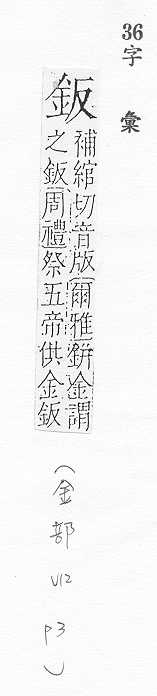 36
字彙
鈑
補綰切音版爾雅鉼金謂
之鈑周禮祭五帝供金鈑
(金部 V12 P3)